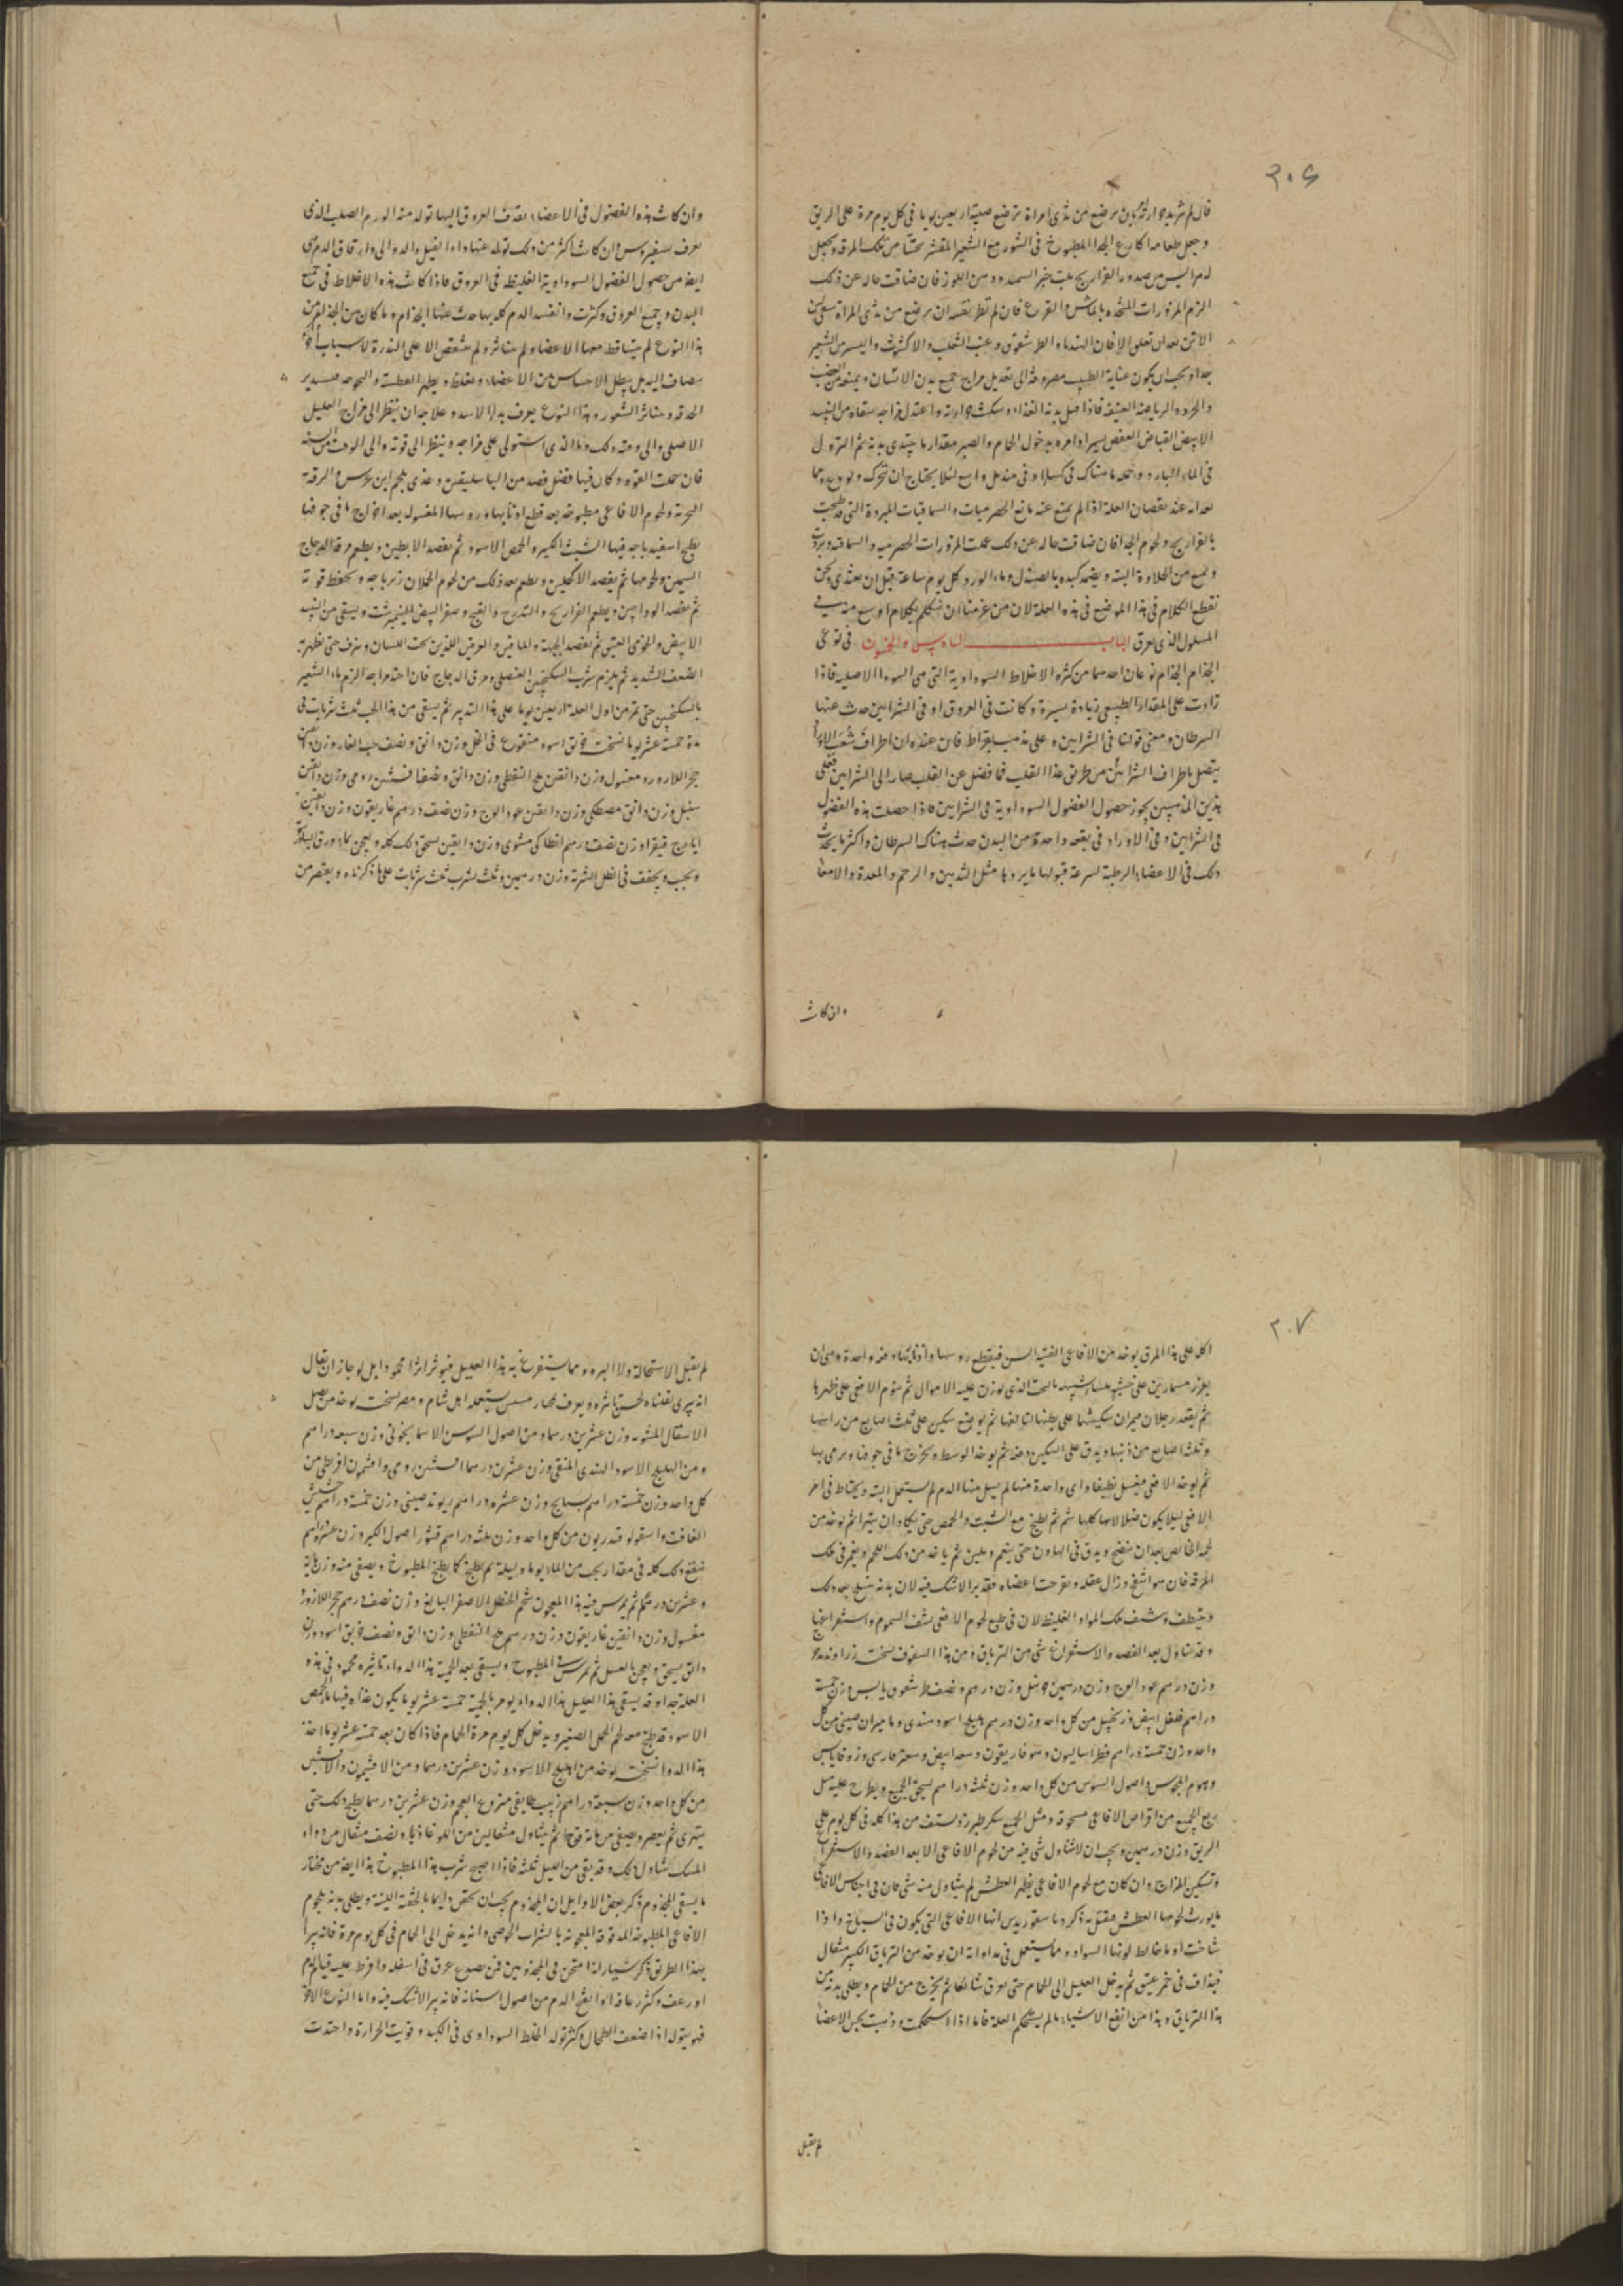 ٢٠٦
فان لم تزيد حرارته بان يرضع من ثدي امراة ترضع صبية اربعين يوما في كل يوم مرة على الريق
وجعل طعامه اكارع الجدا المطبوخ في التنور مع الشعير المقشر متخذا من تلك المرقة ويجعل
الفراريج بلب خبز السميد ودهن اللوز فان ضاقت حاله عن ذلك
الزم المزورات المتخذه بالماش والقرع فان لم تطب نفسه ان يرضع من ثدي المراة سقي لبن
الاتن بعد ان تعلف الاتان الهندباء والطرشقوق وعنب الثعلب والاكشوث واليسير من الشعير
جدا ويجب ان يكون عناية الطبيب مصروفة الى تعديل مزاج جميع بدن الانسان ويمنعه من الغضب
والحرد والرياضة العنيفة فاذا قبل بدنه الغذاء وسكنت حرارته واعتدل مزاجه سقاه من النبيذ
الابيض القباض العفص يسيرا وامره بدخول الحمام والصبر مقدار ما يبتدي بدنه ثم النزول
في الماء البارد وحمله ما هناك في كساء او في منديل واسع لئلا يحتاج ان يتحرك
بعد انه عند نقصان العلة اذا لم يمنع عنه مانع الحصرميات والسماقيات المبردة التي قد طبخت
بالفراريج ولحوم الجدا فان ضاقت حاله عن ذلك عملت المزورات الحصرميه والسماقيه وبردت
ومنع من الحلاوة البتة ويضمد كبده بالصندل وماء الورد كل يوم ساعة قبل ان يغتذي ونحن
نقطع الكلام في هذا الموضع في هذه العلة لان من عزمنا ان نتكلم بكلام اوسع منه في
المسلول الذي يعرق الباب السادس والخمسون في نوعي
الجذام الجذام نوعان احدهما من كثرة الاخلاط السوداوية التي هي السوداء الاصلية فاذا
زادت على المقدار الطبيعي زيادة يسيرة وكانت في العروق او في الشرايين حدث عنها
السرطان ومعنى قولنا في الشرايين وعلى مذهب بقراط فان عنده ان اطراف شعب الاوراد
يتصل باطراف الشرائين من طريق غذاء القلب فما فضل عن القلب صار الى الشرايين فعلى
هذين المذهبين يجوز حصول الفضول السوداوية في الشرايين فاذا حصلت هذه الفضول
في الشرايين وفي الاوراد في بقعة واحدة من البدن حدث هناك السرطان واكثر ما يحدث
ذلك في الاعضاء الرطبة لسرعة قبولها ما يرد ها مثل الثديين والرحم والمعدة والامعاء
وان كانت
وان كانت هذه الفضول في الاعضاء تقذف العروق اليها تولد منه الورم الصلب الذي
يعرف بسقيروس وان كانت اكثر من ذلك تولد عنها داء الفيل والدوالي وارتقاق الدم هي
ايضا من حصول الفضول السوداوية الغليظة في العروق فاذا كانت هذه الاخلاط في جميع
البدن وجميع العروق وكثرت وانفسد الدم كله بها حدث عنها الجذام وما كان من الجذام من
هذا النوع لم يتساقط معها الاعضاء ولم يتناثر ولم يتنقص الا على الندرة لاسباب اخر
يضاف اليه بل يبطل الاحساس من الاعضاء ويغلظ ويظهر الفطسة والبحوحة ويستدير
الحدقه ويتناثر الشعور وهذا النوع يعرف بداء الاسد وعلاجه ان ينظر الى مزاج العليل
الاصلي والى وقته ذلك وما الذي استولى على مزاجه وينظر الى قوته والى الوقت من السنة
فان سمحت القوة وكان فيها فضل فصد من الباسليقين وغذي بلحم ابن عرس والمرقة
البحرية ولحوم الافاعي مطبوخة بعد قطع اذنابها وروسها المغسولة بعد اخراج ما في جوفها
يطبخ اسفيدباجه فيها الشبث الكثير والحمص الاسود ثم يفصد الابطين ويطعم مرقة الدجاج
السمين ولحومها ثم يفصد الاكحلين ويطعم بعد ذلك من لحوم الحملان زيرباجه ويحفظ قوته
ثم يفصد الوداجين ويطعم الفراريج والتدرج والقبج وصفر البيض النيمبرشت ويسقى من النبيذ
الابيض والخوصي العتيق ثم يفصد الجبهة والماقين والعرقين اللذين تحت اللسان وينزف حتى يظهر به
الضعف الشديد ثم يلزم شرب السكنجبين العنصلي ومرق الدجاج فان احتد مزاجه الزم ماء الشعير
بالسكنجبين حتى تمر من اول العلة اربعين يوما على هذا التدبير ثم يسقى من هذا الحب ثلث شربات في
مدة خمسة عشر يوما نسخته خربق اسود منقوع في الخل وزن دانق ونصف حب الغار وزن دانقين
حجر اللازورد مغسول وزن دانقين ملح النفطي وزن دانق ونصف افسنتين رومي وزن دانقين
سنبل وزن دانق مصطكي وزن دانقين عود الوج وزن نصف درهم غاريقون وزن دانقين
ايارج فيقرا وزن نصف درهم انطاكي مشوي وزن دانقين يسحق ذلك كله ويعجن بماء ورق
ويحبب ويجفف في الظل الشربة وزن درهمين وثلث يشرب ثلث شربات على ما ذكرناه ويقتصر من
٢٠٧
اكله على هذا المرق يوخذ من الافاعي الفتية السن فيقطع روسها واذنابها دفعة واحدة وهي ان
يغرز مسمارين على خشبه الذي يوزن عليه الاموال ثم ينوم الافعى على ظهرها
ثم يقعد رجلان ميمران سكينهما على بطنها لتالفها ثم يوضع سكين على ثلث اصابع من راسها
وثلث اصابع من ذنبها ويدق على السكين دفعة ثم يوخذ الوسط ويخرج ما في جوفها ويرمى بها
ثم يوخذ الافعى فيغسل نظيفا واي واحدة منها لم يسيل منها الدم لم يستعمل البتة ويحتاط في امر
الافعى ثم يطبخ مع الشبت والحمص حتى يكاد ان يتهرا ثم يوخذ من
لحمه الخالص بعد ان ينضج ويدق في الهاون حتى ينعم ويلين ثم ياخذ من ذلك اللحم ويغمر في تلك
المرقة فان هو انتفخ وزال عقله وتقرحت اعضاه فقد برا لاشك فيه لان بدنه ينسلخ بعد ذلك
وينظف وينشف تلك المواد الغليظه لان في طبع لحوم الافعى ينشف السموم واستفراغها
وقد يتناول بعد الفصد والاستفراغ شي من الترياق ومن هذا السفوف نسخته زراوند مدحرج
وزن درهم عود الوج وزن درهمين وزن درهم ونصف طرشقوق يابس وزن خمسة
دراهم فلفل ابيض وزنجبيل من كل واحد وزن درهم هليلج اسود هندي وماميران صيني من كل
واحد وزن خمسة دراهم فطراساليون وهو فاريقون وسعد ابيض وسعتر فارسي وزوفا يابس
وهوم المجوس واصول السوس من كل واحد وزن ثلثة دراهم يسحق الجميع ويطرح عليه مثل
ربع الجميع من اقراص الافاعي مسحوقة ومثل الجميع سكر طبرزد يستف من هذا كله في كل يوم على
الريق وزن درهمين ويجب ان لا يتناول شي فيه من لحوم الافاعي الا بعد الفصد والاستفراغ
وتسكين المزاج وان كان مع لحوم الافاعي يظهر العطش لم يتناول منه شي فان في اجناس الافاعي
ما يورث لحومها العطش مقتل به ذكر دياسقوريدس انها الافاعي التي يكون في السباخ واذا
شاخت او ما خالط لونها السواد ومما يستعمل في مداواته ان يوخذ من الترياق الكبير مثقال
فيذاف في خمر عتيق ثم يدخل العليل الى الحمام حتى يعرق شانقا ثم يخرج من الحمام ويطلى بدنه من
هذا الترياق وهذا من انفع الاشياء ما لم يستحكم العلة فاما اذا استحكمت وذهبت بحس الاعضاء
لم يقبل
لم يقبل الاستحالة ولا البرء ومما يستفرغ به هذا العليل فيوثر اثرا محمودا بل لو جاز ان يقال
انه يبري لقلناه لحسن تاثره ويعرف يستعمله اهل شام ومصر نسخته يوخذ من بصل
الاسقال المشوية وزن عشرين درهما ومن اصول السوسن الاسمانجوني وزن سبعة دراهم
ومن الهليلج الاسود الهندي المنقى وزن عشرين درهما افسنتين رومي وافتيمون اقريطي من
كل واحد وزن خمسة دراهم بسبايج وزن عشرة دراهم ريوند صيني وزن خمسة دراهم حشيش
الغافت واسقولوقندريون من كل واحد وزن ثلثه دراهم قشور اصول الكبر وزن عشرة دراهم
ينقع ذلك كله في مقدار يجب من الماء يوما وليلة ثم يطبخ كما يطبخ المطبوخ ويصفى منه وزن مائة
وعشرين درهم ثم يمرس فيه هذا المعجون شحم الحنظل الاصفر البالغ وزن نصف درهم حجر اللازورد
مغسول وزن دانقين غاريقون وزن درهم ملح النفطي وزن دانق ونصف خربق اسود وزن
دانق يسحق ويعجن بالعسل ثم يمرس في المطبوخ ويسقى بعد الحمية هذا الدواء تاثيره محمود في هذه
العلة جدا وقد يسقى هذا العليل هذا الدواء يومر بالحمية خمسة عشر يوما يكون غذاه فيها ماء الحمص
الاسود قد طبخ معه لحم الحمل الصغير ويدخل كل يوم مرة الحمام فاذا كان بعد خمسة عشر يوما اخذ
هذا الدواء نسخته يوخذ من الهليلج الاسود وزن عشرين درهما ومن الافتيمون والافسنتين
من كل واحد وزن سبعة دراهم زبيب طايفي منزوع العجم وزن عشرين درهما يطبخ ذلك حتى
يتهرى ثم يعصر ويصفى ثم يتناول مثقالين من اللوغاذيا ونصف مثقال من دواء
المسك يتناول ذلك وقد بقي من الليل ثلثه فاذا اصبح شرب هذا المطبوخ هذا ايضا من مختار
ما يسقى المجذوم ذكر بعض الاوايل ان المجذوم يجب ان يحقن دايما بالحقنة اللينة ويطلى بدنه بلحوم
الافاعي المطبوخه المدقوقة المعجونه بالشراب الخوصي وانه يدخل الى الحمام في كل يوم مرة فانه يبرا
بهذا الطريق ذكر شيئا لذا امتحن في المجذومين فمن يصدع عرق في اسفله وافرط عليه قيام الدم
او رعف وكثر رعافه او انفتح الدم من اصول اسنانه فانه يبرا لاشك فيه واما النوع الاخر
فهو يتولد اذا ضعف الطحال وكثر تولد الخلط السوداوي في الكبد وقويت الحرارة واحتدت